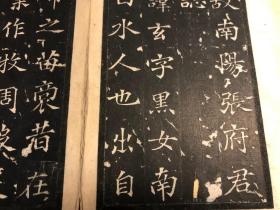 故南陽張府君
誌
諱玄字黑女南
白水人也出自
帝之苗裔昔在
葉作牧周殷